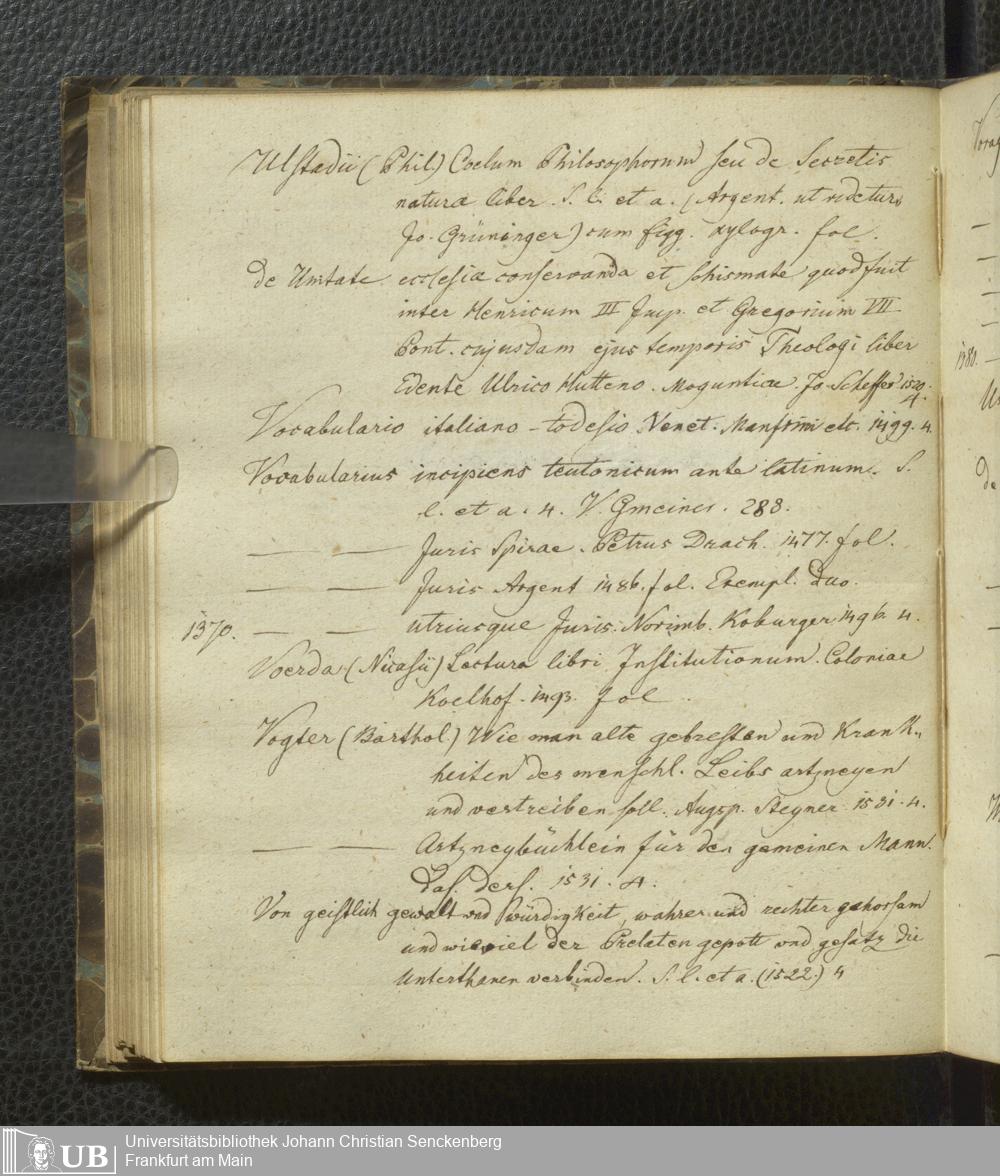 Ulstadii (Phil.) Coelum Philosophorum seu de Secretis
naturæ liber. S. l. et a. (Argent. ut videtur
Jo. Grüninger) cum figg. xylogr. fol.
De Unitate ecclesiæ conservanda et schismate quod fuit
inter Henricum III Imp. et Gregorium VII
Pont. cujusdam ejus temporis Theologi liber
Edente Ulrico Hutteno. Moguntiae. Jo Scheffer 1520.
4.
Vocabulario italiano-todesio Venet. Manfrini etc. 1499. 4.
Vocabularius incipiens teutonicum ante latinum. S.
l. et a. 4. V. Gmeiner. 288.
— — Juris Spirae. Petrus Drach. 1477. fol.
— — Juris Argent 1486. fol. Exempl. Duo.
1370. — — utriusque Juris. Norimb. Koburger 1496. 4.
Voerda (Nicasii) Lectura libri Institutionum. Coloniae
Koelhof. 1493. fol
Vogter (Barthol.) Wie man alte gebresten und Krank„
heiten des menschl. Leibs artzneyen
und vertreiben soll. Augsp. Steyner. 1531. 4.
— — Artzneybüchlein für den gemeinen Mann.
Das. Ders. 1531. 4.
Von geistlich gewalt vnd würdigkeit, wahrer und rechter gehorsam
und wieviel der Prelaten gepott vnd gesatz die
Unterthanen verbinden. S. l. et a. (1522.) 4
1380.
UB
Universitätsbibliothek Johann Christian Senckenberg
Frankfurt am Main